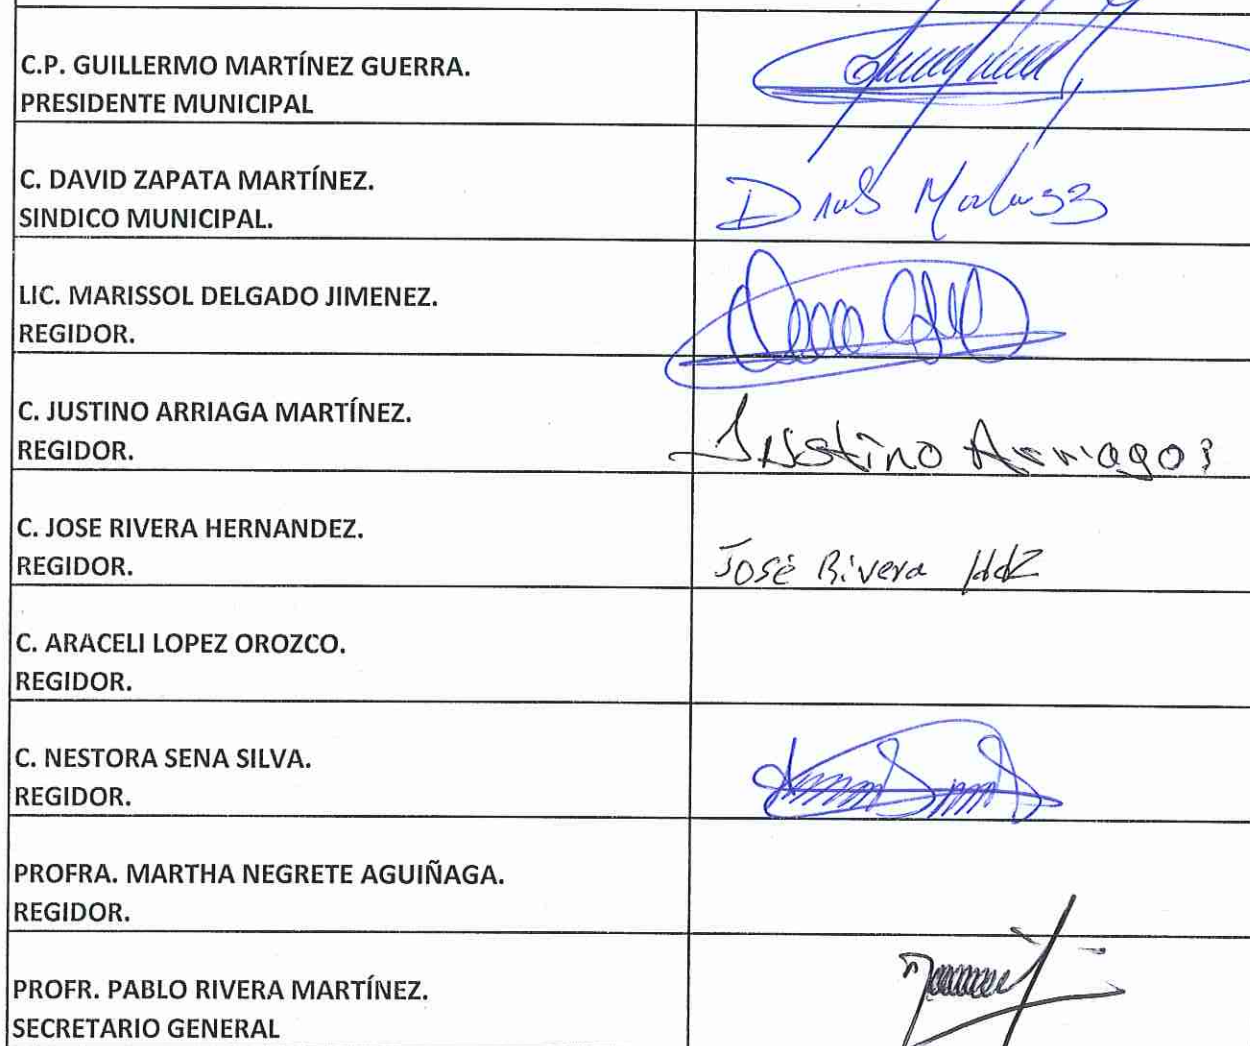 C.P. GUILLERMO MARTÍNEZ GUERRA.
PRESIDENTE MUNICIPAL
C. DAVID ZAPATA MARTÍNEZ.
SINDICO MUNICIPAL.
LIC. MARISSOL DELGADO JIMENEZ.
REGIDOR.
C. JUSTINO ARRIAGA MARTÍNEZ.
REGIDOR.
Justino Arriaga
C. JOSE RIVERA HERNANDEZ.
REGIDOR.
José Rivera Hdz
C. ARACELI LOPEZ OROZCO.
REGIDOR.
C. NESTORA SENA SILVA.
REGIDOR.
PROFRA. MARTHA NEGRETE AGUIÑAGA.
REGIDOR.
PROFR. PABLO RIVERA MARTÍNEZ.
SECRETARIO GENERAL